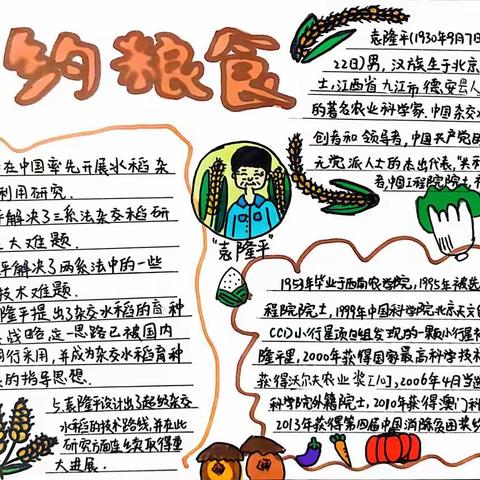 约粮食
袁隆平(1930年9月7日
22日)男,汉族生于北京
士,江西省九江市德安县人
的著名农业科学家,中国杂交水
创者和领导者,中国共产党的
元党派人士的杰出代表,"共和
者,中国工程院院士
在中国率先开展水稻杂
利用研究.
解决了三系法杂交水稻研
大难题.
平解决了两系法中的一些
技术难题.
隆平提出了杂交水稻的育种
战略这一思路已被国内
同行采用,并成为杂交水稻育种
的指导思想.
5、袁隆平设计出了超级杂交
水稻的技术路线,并在此
研究方面连续取得重
大进展.
"袁隆平"
1953年毕业于西南农学院,1995年被选
程院院士,1999年中国科学院北京天文台
CCD小行星项目组发现的一颗小行星被
隆平星,2000年获得国家最高科学技术
获得沃尔夫农业奖[1],2006年4月当选
科学院外籍院士,2010年获得澳门科
2013年获得第四届中国消除贫困奖终